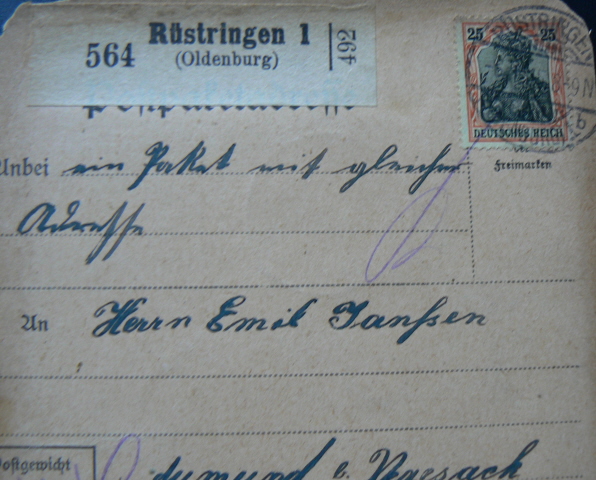 564 Rüstringen 1 492
(Oldenburg)
RÜSTRINGEN
25 25
DEUTSCHES REICH
b
Freimarken
Anbei ein Paket mit gleicher
Adresse
An Herrn Emil Janßen
Postgewicht
b. Vegesack